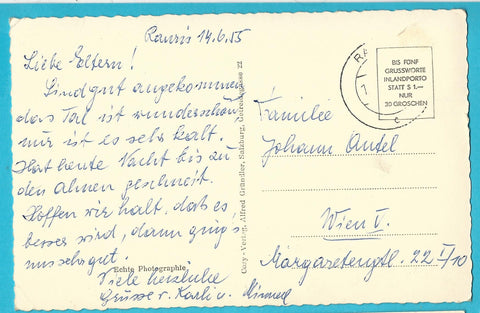 Rauris 14.6.55
Liebe Eltern!
Sind gut angekommen
das Tal ist wunderschön
nur ist es sehr kalt.
Hat heute Nacht bis zu
den Almen geschneit.
Hoffen wir halt, daß es
besser wird, dann ging's
uns sehr gut.
Viele herzliche
Grüsse v. Karli u.
Echte Photographie
Copy-Verlag, Alfred Gründler, Salzburg, Getreidegasse 22
RA
BIS FÜNF
GRUSSWORTE
INLANDPORTO
STATT S 1.—
NUR
30 GROSCHEN
c
Familie
Johann Antel
Wien V.
Margaretengtl. 22 I/10